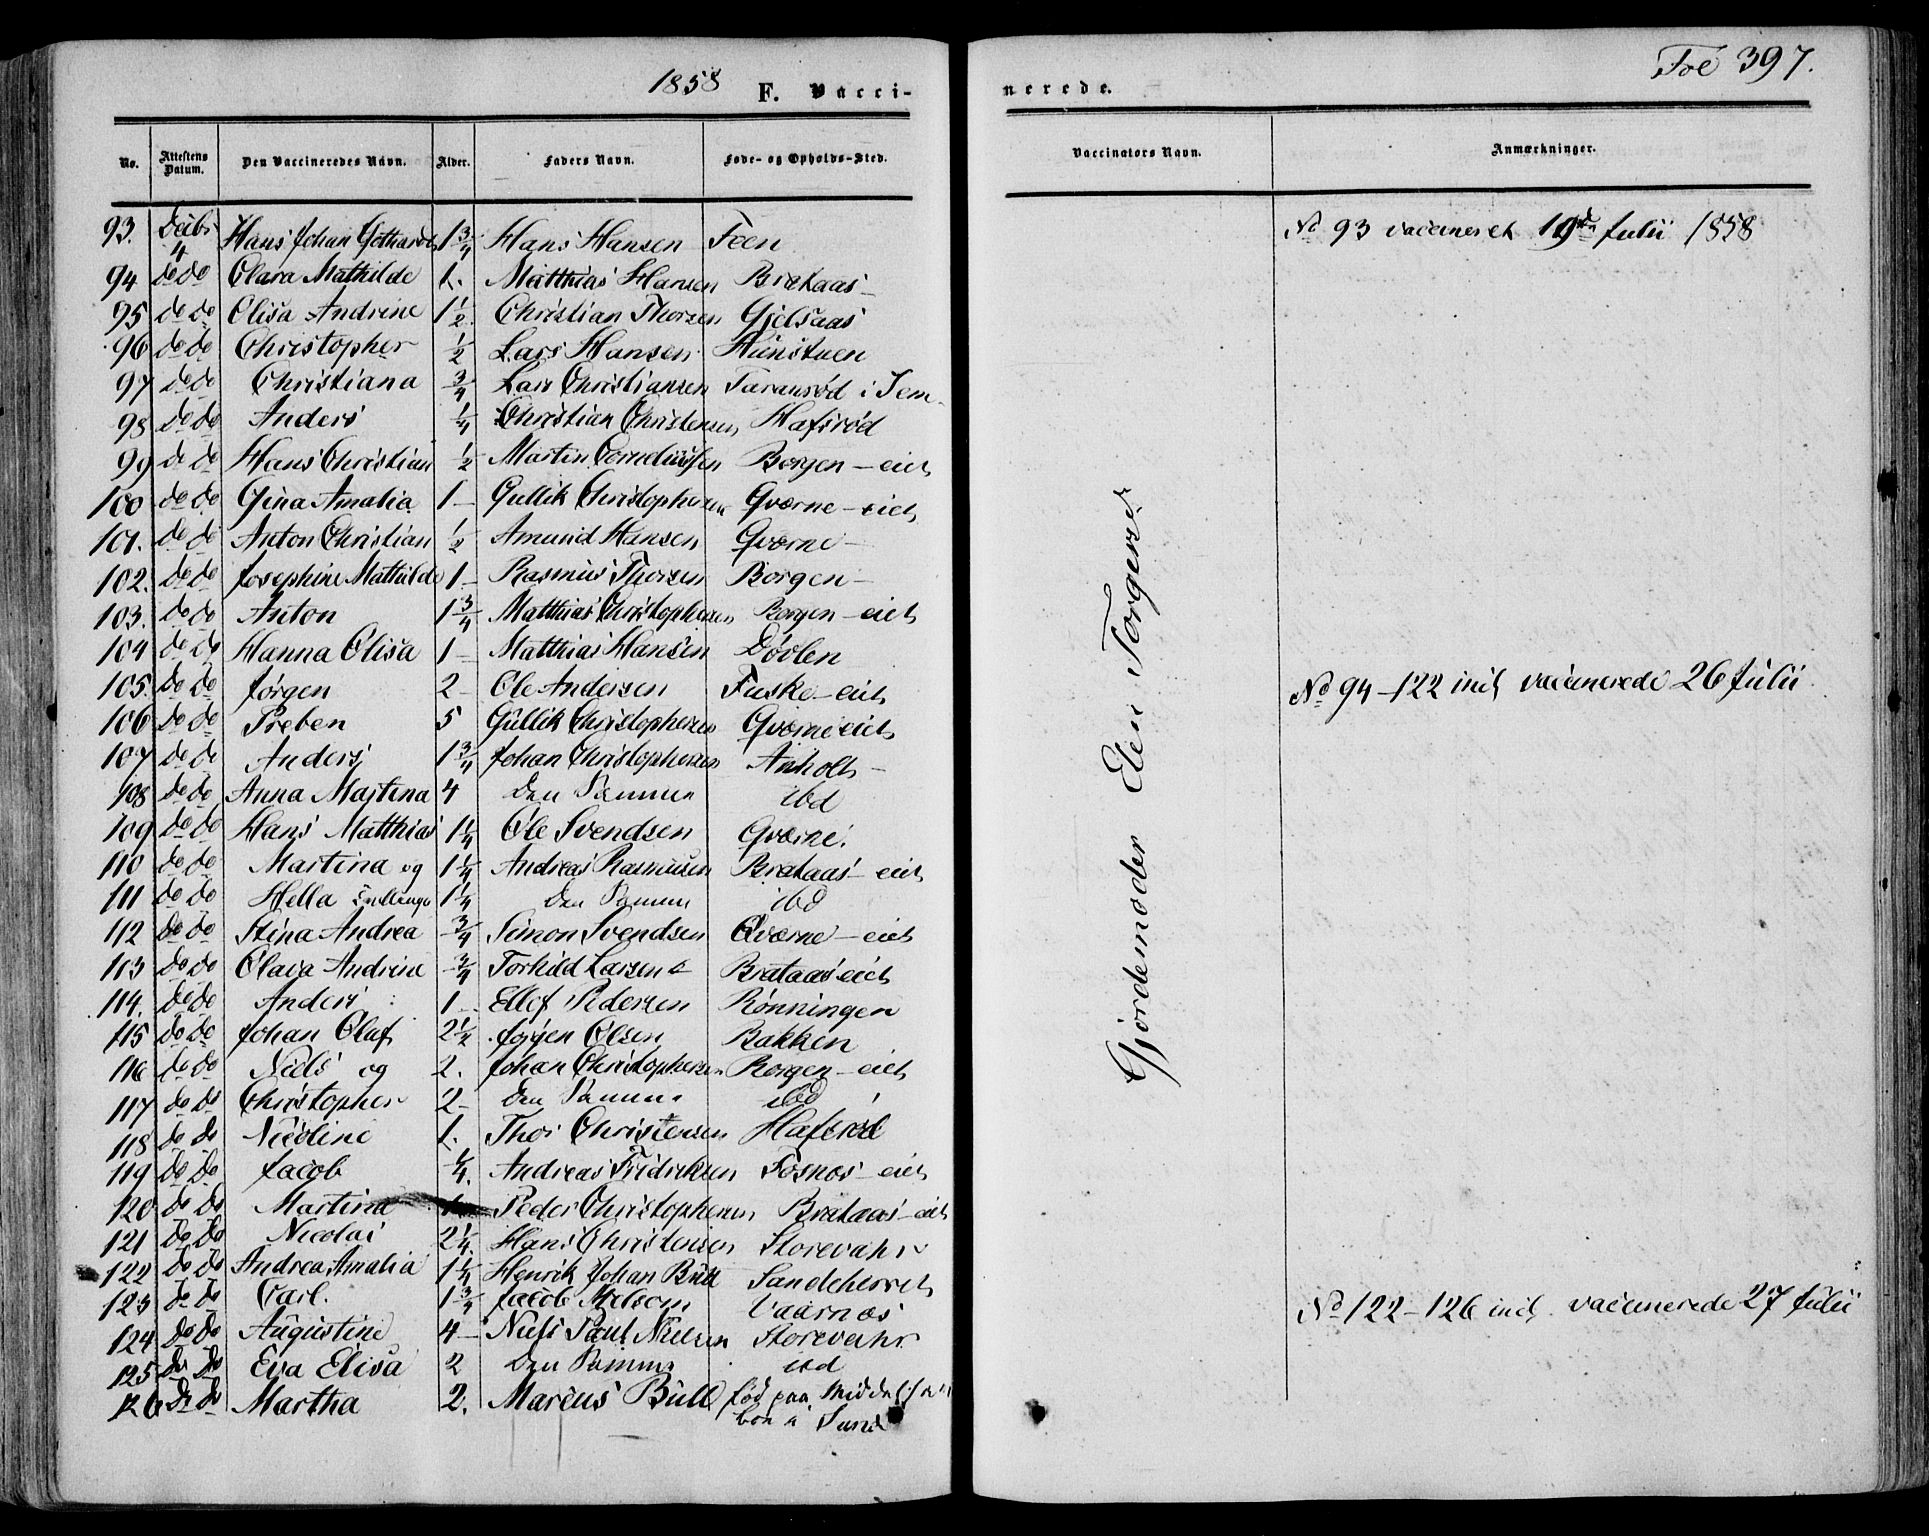 1858 F. Vacci-
nerede. Fol 397.
No. Attestens Datum. Den Vaccineredes Navn. Alder. Faders Navn. Føde- og Opholds-Sted. Vaccinators Navn. Anmærkninger.
93. 4 Hans Johan Gothardt 1 3/4 Hans Hansen Feen No 93 vaccineret 19de Julii 1858
94 do do Clara Mathilde 1. Matthias Hansen Brataas
95 do do Elisa Andrine 1 1/2 Christian Thorsen Gjelsaas
96 do do Christopher 1/2 Lars Hansen Hunstuen
97 do do Christiana 3/4 Lars Christiansen Taranrød i Sem
98 do do Anders 1/4 Christian Christensen Hafsrød
99 do do Hans Christian 1/2 Martin Corneliussen Borgen-eiet
100 do do Gina Amalia 1 Gullik Christophersen Qværne-eiet
101. do do Anton Christian 1/2 Amund Hansen Qværne
102. do do Josephine Mathilde 1 Rasmus Thorsen Borgen
103. do do Anton 1 3/4 Matthias Christophersen Borgen-eiet
104 do do Hanna Elisa 1 Matthias Hansen Døvlen
105. do do Jørgen 2 Ole Andersen Fuske-eiet No 94-122 incl vaccinerede 26 Julii
106 do do Preben 5 Gullik Christophersen Qværneeiet
107 do do Anders 1 3/4 Johan Christophersen Anholt
108 do do Anna Martina 4 den Samme ibd
109 do do Hans Matthias 1 1/4 Ole Svendsen Qværne.
110 do do Martina og 1 1/4 Andreas Rasmusen Brataas-eiet
111 do do Hella Tvillinge 1 1/4 den Samme ibd
112 do do Stina Andrea 3/4 Simon Svendsen Qværne-eiet
113 do do Olava Andrine 3/4 Torkild Larsen Brataaseiet
114. do do Anders 1 Ellef Pedersen Rønningen
115 do do Johan Olaf 2 1/2 Jørgen Olsen Bakken
116 do do Niels og 2. Johan Christophersen Borgen-eiet
117 do do Christopher 2 den Samme ibd
118 do do Nicoline 1. Thor Christensen Hafsrød
119 do do Jacob 1/4. Andreas Fredriksen Fosnæs-eiet
120 do do Martina Peder Christophersen Brataas-eiet
121 do do Nicolai 2 1/4. Hans Christensen Storevahr
122 do do Andrea Amalia 1 1/4 Henrik Johan Bull Sandeherret
123 do do Carl. 1 3/4 Jacob Melsom Vaarnæs No 122-126 incl. vaccinerede 27 Julii
124 do do Augustine 4 Niels Paul Nielsen Storevahr
125 do do Eva Elisa 2 den Samme ibd
126 do do Martha 2. Marcus Bull fød paa
Gjordemoder Elen Torgersd.